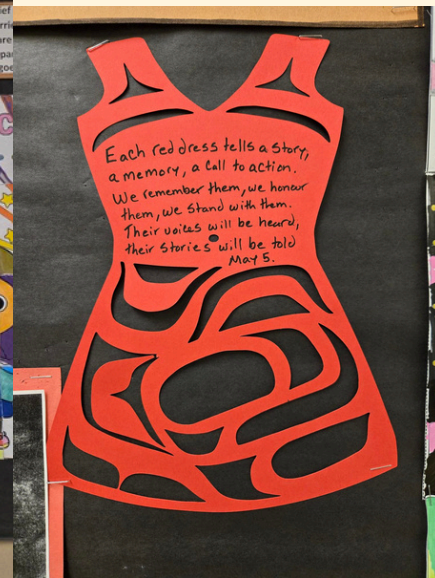 Each red dress tells a story,
a memory, a call to action.
We remember them, we honour
them, we stand with them.
Their voices will be heard,
their stories will be told
May 5.